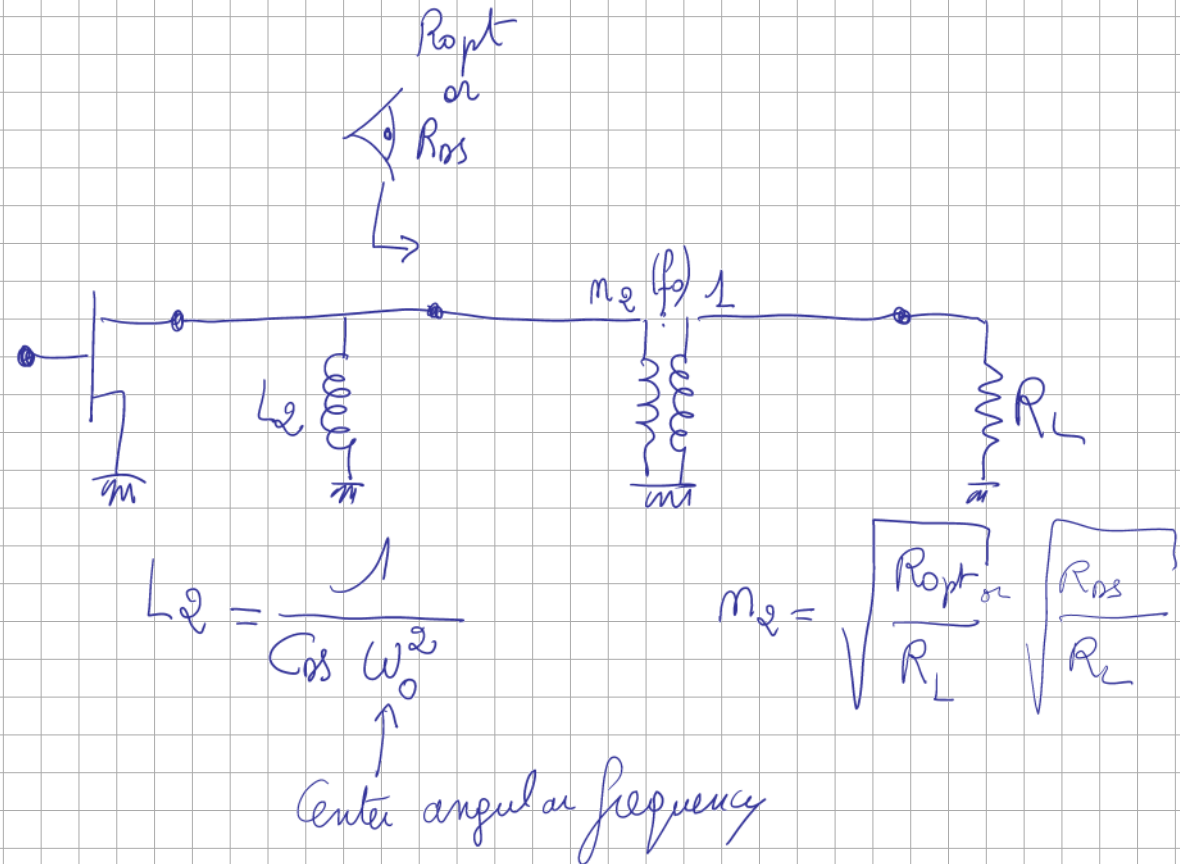 Ropt
or
RDS
n2 (f0) : 1
L2
RL
L2 = 1 / (CDS ω0²)
n2 = √(Ropt / RL) or √(RDS / RL)
Center angular frequency